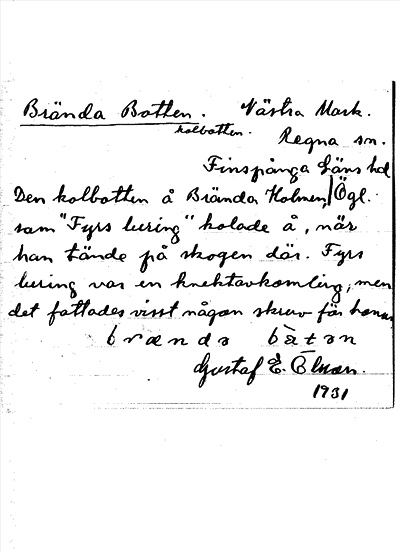 Brända Botten. Västra Mark.
kolbotten.
Regna sn.
Finspånga Läns hd
Den kolbotten å Brända Holmen, Ögl.
som "Fyrs luring" kolade å, när
han tände på skogen där. Fyrs
luring var en knektavkomling, men
det fattades visst någon skruv för honom.
brændа båtən
Gustaf E.
1931